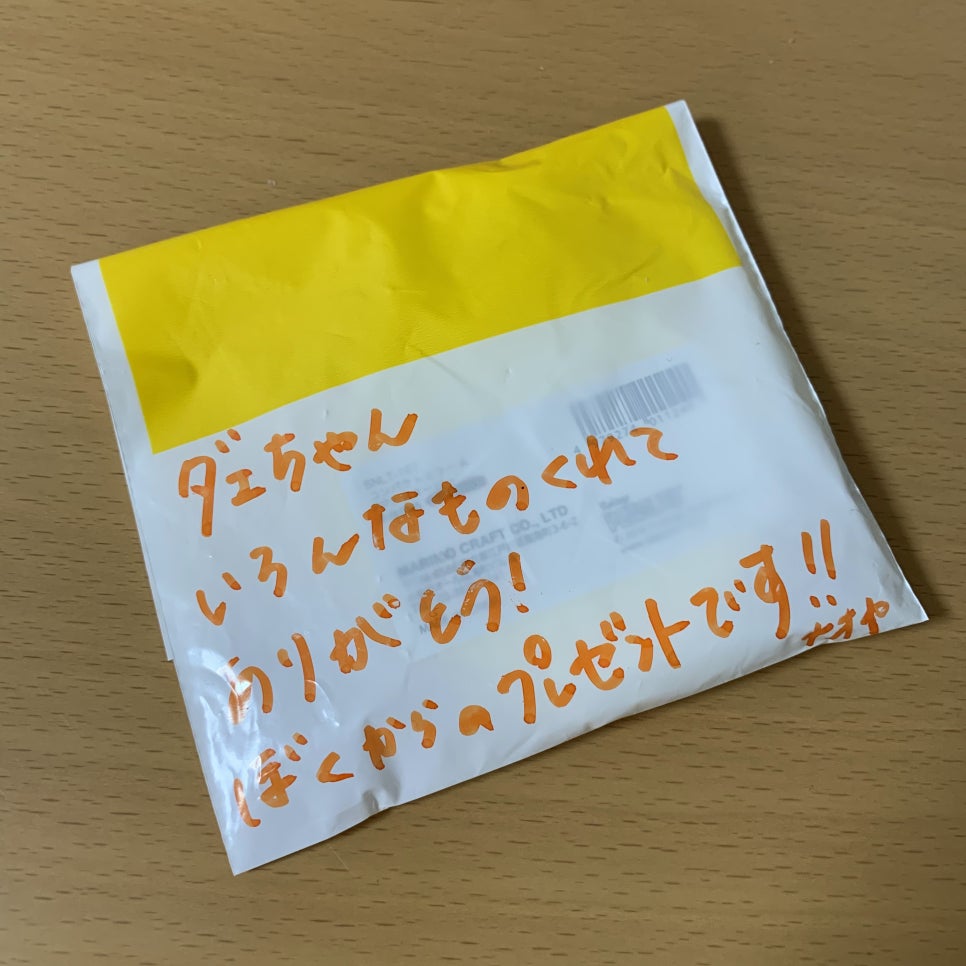 ダェちゃん
いろんなものくれて
ありがとう!
ぼくからのプレゼントです!!
MARUKO CRAFT CO., LTD